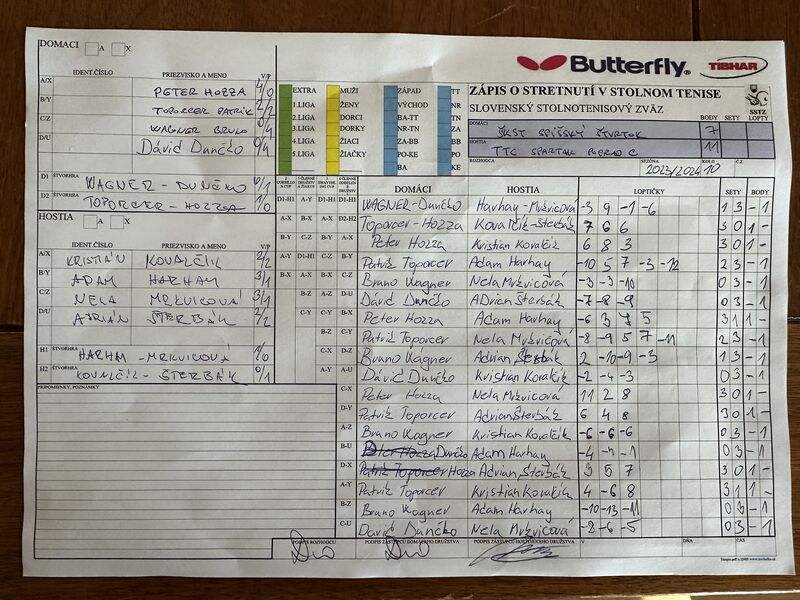 DOMACI A X
IDENT.ČÍSLO PRIEZVISKO A MENO V/P
A/X PETER HOZZA 4/0
B/Y TOPORCER PATRIK 2/2
C/Z WAGNER BRUNO 0/4
D/U Dávid Dunčko 0/4
D1 ŠTVORHRA WAGNER - DUNČKO 0/1
D2 ŠTVORHRA TOPORCER - HOZZA 1/0
HOSTIA A X
IDENT.ČÍSLO PRIEZVISKO A MENO V/P
A/X KRISTIÁN KOVALČÍK 2/2
B/Y ADAM HARHAY 3/1
C/Z NELA MRKVICOVÁ 3/1
D/U ADRIÁN ŠTERBÁK 2/2
H1 ŠTVORHRA HARHAY - MRKVICOVÁ 1/0
H2 ŠTVORHRA KOVALČÍK - ŠTERBÁK 0/1
PRIPOMIENKY, POZNÁMKY
Butterfly TIBHAR
EXTRA MUŽI ZÁPAD TT
1.LIGA ŽENY VÝCHOD NR
2.LIGA DORCI BA-TT TN
3.LIGA DORKY NR-TN ZA
4.LIGA ŽIACI ZA-BB BB
5.LIGA ŽIAČKY PO-KE PO
BA KE
ZÁPIS O STRETNUTÍ V STOLNOM TENISE
SLOVENSKÝ STOLNOTENISOVÝ ZVÄZ
SSTZ
BODY SETY LOPTY
DOMÁCI ŠKST SPIŠSKÝ ŠTVRTOK 7
HOSTIA TTC SPARTAK POPRAD C 11
ROZHODCA SEZÓNA 2023/2024 KOLO 10 Č.Z.
DOMÁCI HOSTIA LOPTIČKY SETY BODY
D1-H1 A-Y D1-H1 D1-H1 WAGNER-Dunčko Harhay-Mrkvicová -3 9 -1 -6 1 3 -1
A-X B-X A-X D2-H2 Toporcer-Hozza Kovalčík-Šterbák 7 6 6 3 0 1 -
B-Y C-Z B-Y A-X Peter Hozza Kristian Kovalčík 6 8 3 3 0 1 -
A-Y D1-H1 C-Z B-Y Patrik Toporcer Adam Harhay -10 5 7 -3 -12 2 3 -1
B-X A-X B-X C-Z Bruno Wagner Nela Mrkvicová -3 -3 -10 0 3 -1
B-Z A-Z D-U Dávid Dunčko Adrian Šterbák -7 -8 -9 0 3 -1
C-Y C-Y B-X Peter Hozza Adam Harhay -6 3 7 5 3 1 1 -
B-Z C-Y Patrik Toporcer Nela Mrkvicová -8 -9 5 7 -11 2 3 -1
C-X D-Z Bruno Wagner Adrian Šterbák 2 -10 -9 -3 1 3 -1
A-Y A-U Dávid Dunčko Kristian Kovalčík -2 -4 -3 0 3 -1
C-X Peter Hozza Nela Mrkvicová 11 2 8 3 0 1 -
D-Y Patrik Toporcer Adrian Šterbák 6 4 8 3 0 1 -
A-Z Bruno Wagner Kristian Kovalčík -6 -6 -6 0 3 -1
B-U Dunčko Adam Harhay 0 3 -1
D-X Hozza Adrian Šterbák 3 5 7 3 0 1 -
A-Y Patrik Toporcer Kristian Kovalčík 4 -6 8 3 1 1 -
B-Z Bruno Wagner Adam Harhay -10 -13 -11 0 3 -1
C-U David Dunčko Nela Mrkvicová -2 -6 -5 0 3 -1
PODPIS ROZHODCU PODPIS ZÁSTUPCU DOMÁCEHO DRUŽSTVA PODPIS ZÁSTUPCU HOSŤUJÚCEHO DRUŽSTVA V DŇA